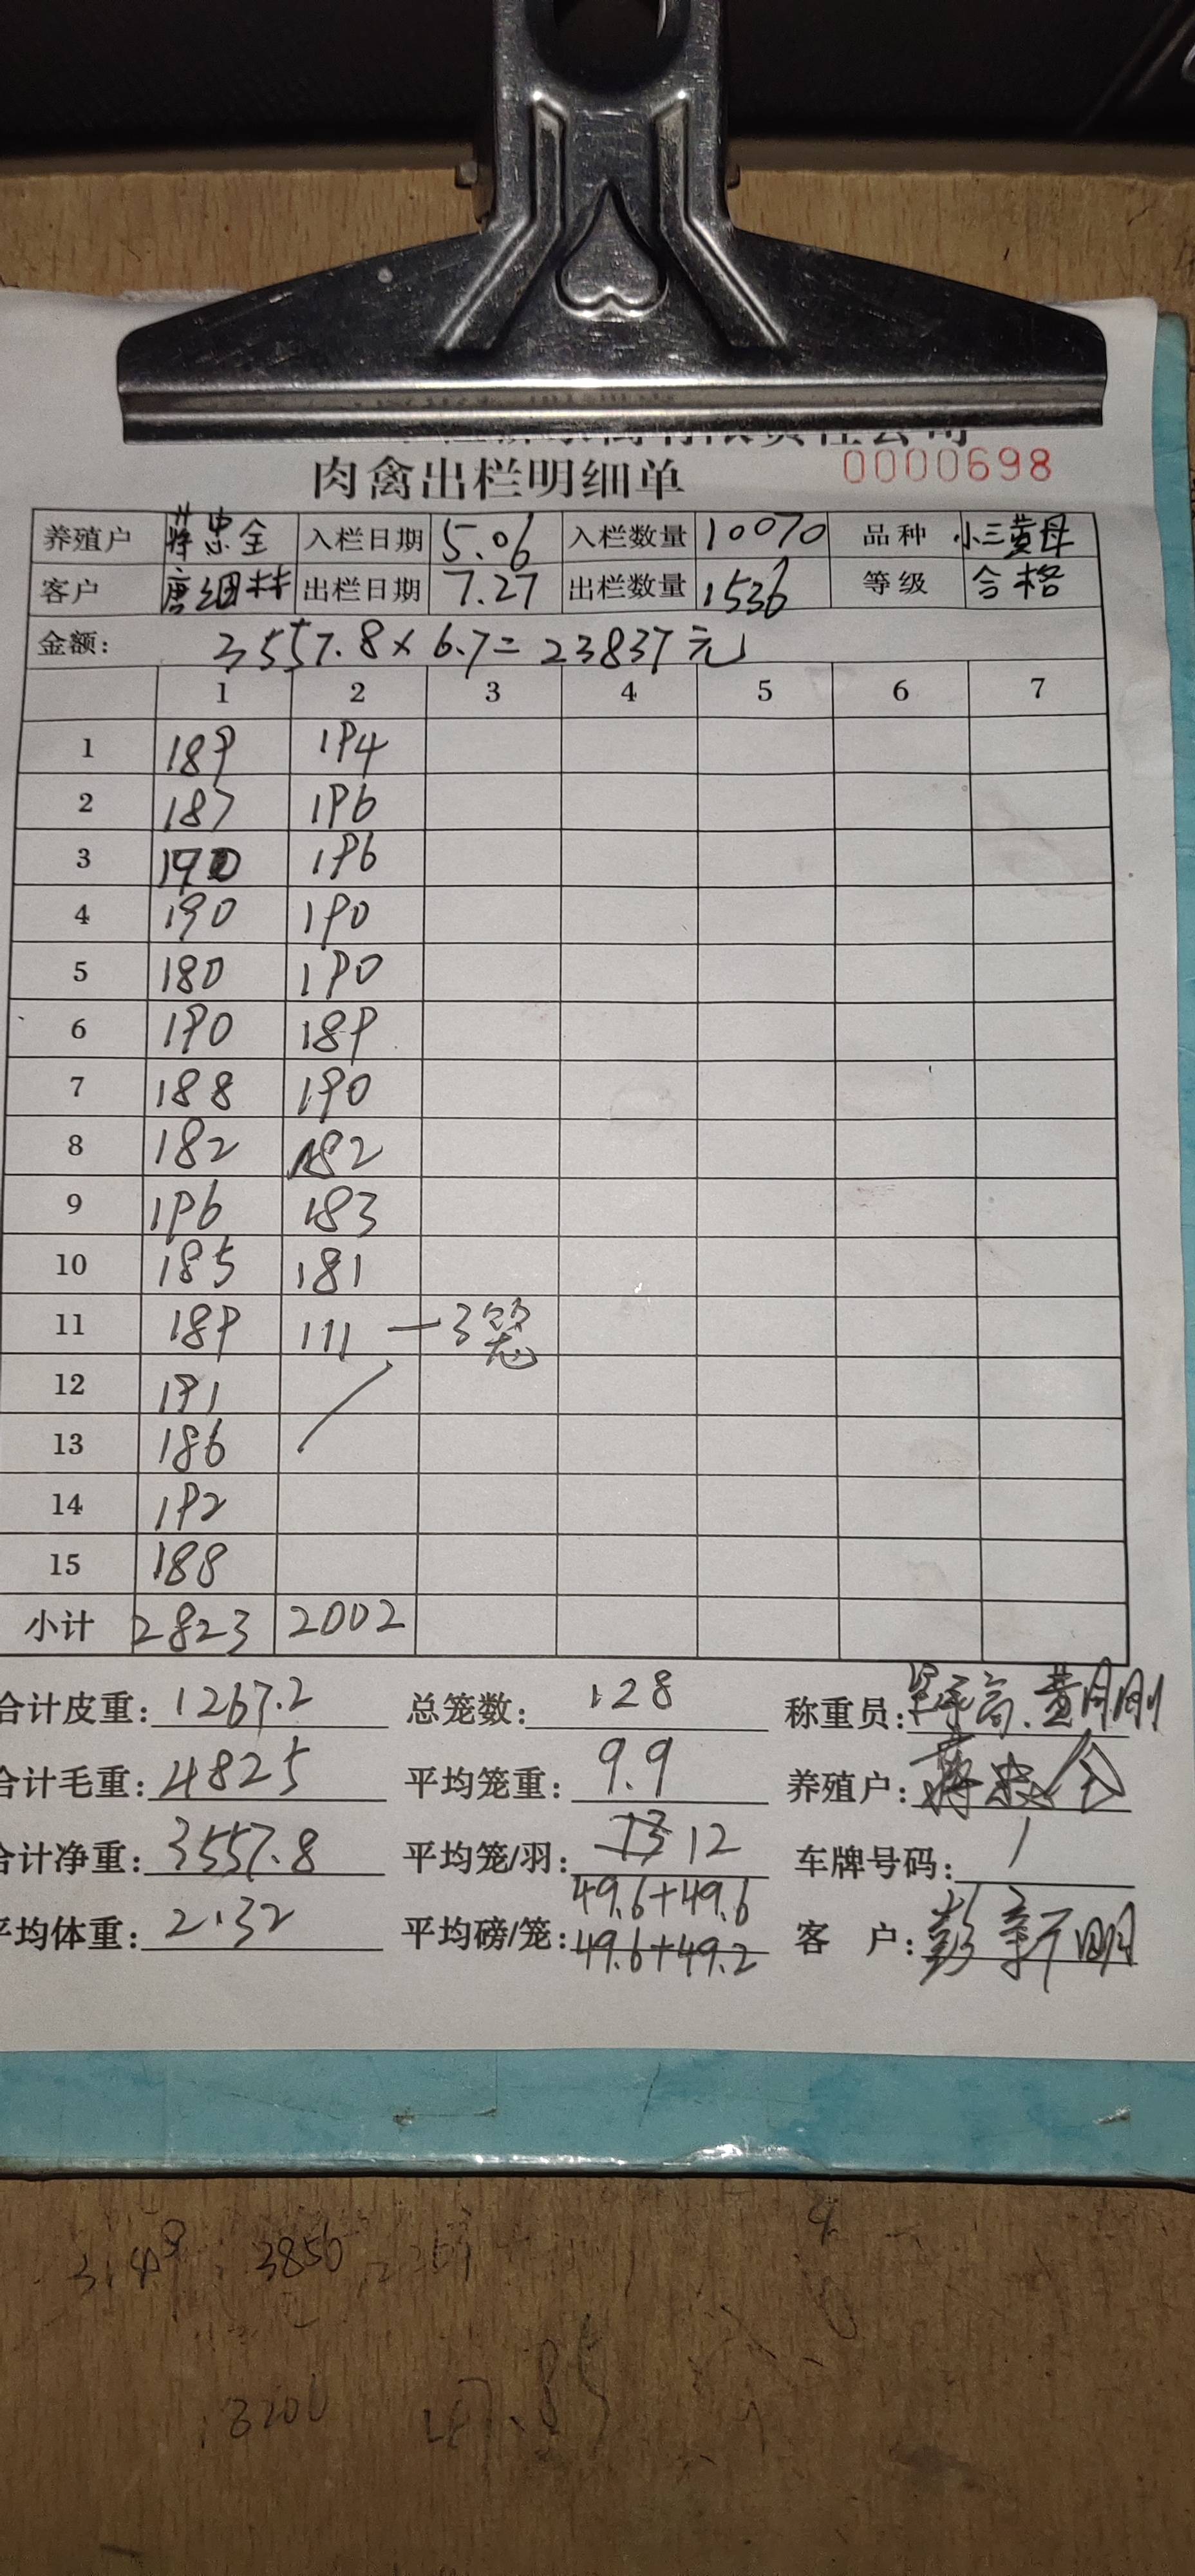 肉禽出栏明细单 0000698
养殖户 蒋忠全 入栏日期 5.06 入栏数量 10070 品种 小三黄母
客户 唐细林 出栏日期 7.27 出栏数量 1536 等级 合格
金额: 3557.8×6.7=23837元
1 2 3 4 5 6 7
1 189 194
2 187 196
3 190 196
4 190 190
5 180 190
6 190 189
7 188 190
8 182 182
9 196 183
10 185 181
11 189 111 —3笼
12 191
13 186
14 192
15 188
小计 2823 2002
合计皮重: 1267.2 总笼数: 128 称重员: 黄刚
合计毛重: 4825 平均笼重: 9.9 养殖户: 蒋忠全
合计净重: 3557.8 平均笼/羽: 13 12 车牌号码: 1
平均体重: 2.32 平均磅/笼: 49.6+49.6 49.6+49.2 客 户: 彭新明
3850
3200